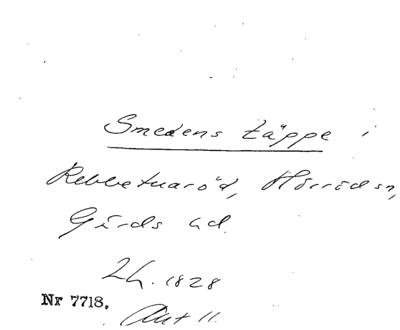 Smedens täppe i
Rebbetuaröd, Hörröds sn,
Gärds hd.
2h. 1828
Nr 7718.
Akt 11.